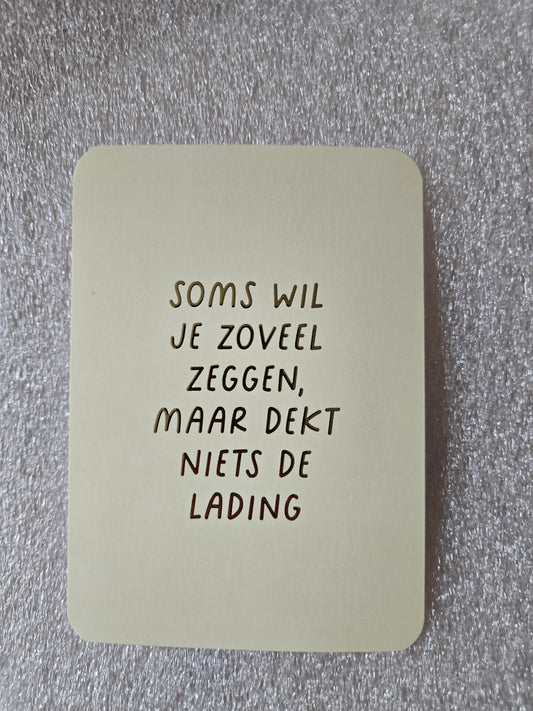 SOMS WIL
JE ZOVEEL
ZEGGEN,
MAAR DEKT
NIETS DE
LADING